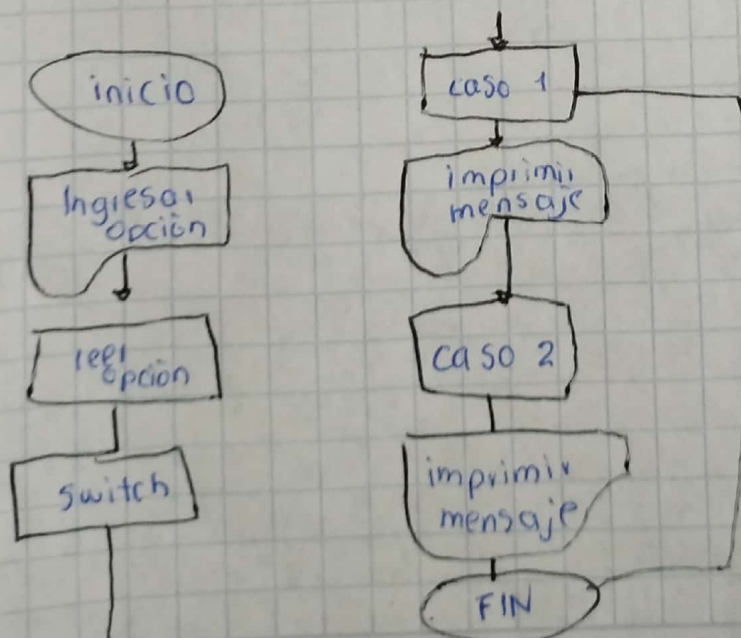 inicio
Ingresar
opción
leer
opción
switch
caso 1
imprimir
mensaje
caso 2
imprimir
mensaje
FIN